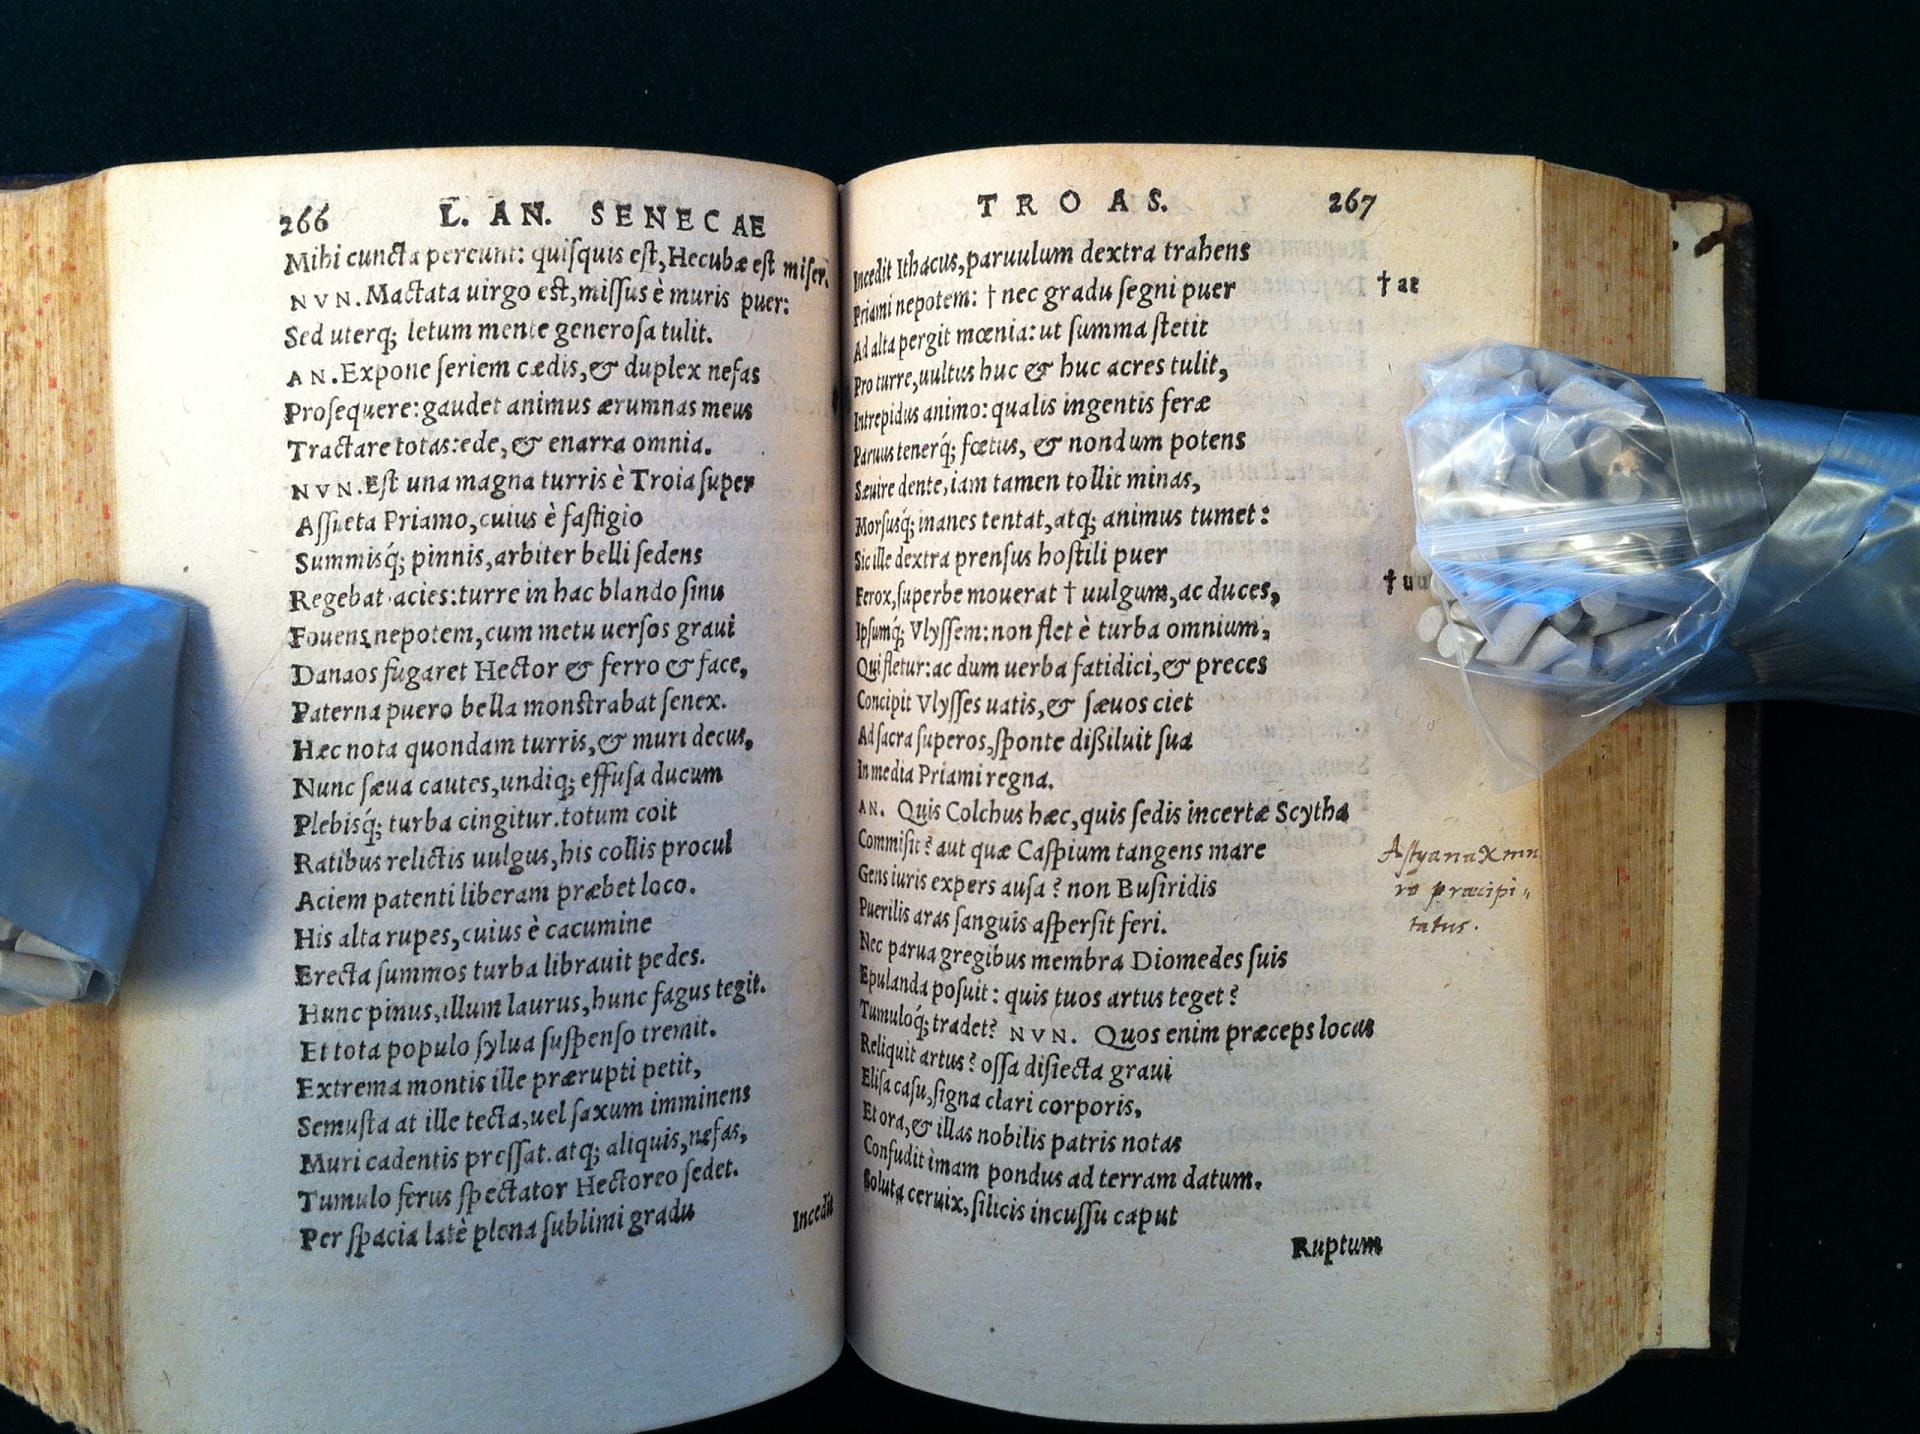 266 L. AN. SENECAE
Mihi cuncta pereunt: quiſquis eſt, Hecubæ eſt miſer.
NVN. Mactata uirgo eſt, miſſus è muris puer:
Sed uterq; letum mente generoſa tulit.
AN. Expone ſeriem cædis, & duplex nefas
Proſequere: gaudet animus ærumnas meus
Tractare totas: ede, & enarra omnia.
NVN. Eſt una magna turris è Troia ſuper
Aſſueta Priamo, cuius è faſtigio
Summisq́; pinnis, arbiter belli ſedens
Regebat acies: turre in hac blando ſinu
Fouens nepotem, cum metu uerſos graui
Danaos fugaret Hector & ferro & face,
Paterna puero bella monſtrabat ſenex.
Hæc nota quondam turris, & muri decus,
Nunc ſæua cautes, undiq; effuſa ducum
Plebisq́; turba cingitur. totum coit
Ratibus relictis uulgus, his collis procul
Aciem patenti liberam præbet loco.
His alta rupes, cuius è cacumine
Erecta ſummos turba librauit pedes.
Hunc pinus, illum laurus, hunc fagus tegit.
Et tota populo ſylua ſuſpenſo tremit.
Extrema montis ille prærupti petit,
Semuſta at ille tecta, uel ſaxum imminens
Muri cadentis preſſat. atq; aliquis, nefas,
Tumulo ferus ſpectator Hectoreo ſedet.
Per ſpacia latè plena ſublimi gradu
Incedit
TROAS. 267
Incedit Ithacus, paruulum dextra trahens
Priami nepotem: † nec gradu ſegni puer
† ac
Ad alta pergit mœnia: ut ſumma ſtetit
Pro turre, uultus huc & huc acres tulit,
Intrepidus animo: qualis ingentis feræ
Paruus tenerq́; fœtus, & nondum potens
Sæuire dente, iam tamen tollit minas,
Morſusq́; inanes tentat, atq; animus tumet:
Sic ille dextra prenſus hoſtili puer
Ferox, ſuperbe mouerat † uulgum, ac duces,
†
Ipſumq́; Vlyſſem: non flet è turba omnium,
Qui fletur: ac dum uerba fatidici, & preces
Concipit Vlyſſes uatis, & ſæuos ciet
Ad ſacra ſuperos, ſponte dißiluit ſua
In media Priami regna.
AN. Quis Colchus hæc, quis ſedis incertæ Scytha
Commiſit? aut quæ Caſpium tangens mare
Gens iuris expers auſa? non Buſiridis
Puerilis aras ſanguis aſperſit feri.
Nec parua gregibus membra Diomedes ſuis
Epulanda poſuit: quis tuos artus teget?
Tumuloq́; tradet? NVN. Quos enim præceps locus
Reliquit artus? oſſa diſiecta graui
Eliſa caſu, ſigna clari corporis,
Et ora, & illas nobilis patris notas
Confudit imam pondus ad terram datum.
Soluta ceruix, ſilicis incuſſu caput
Ruptum
Aſtyanax mu
ro præcipi-
tatus.